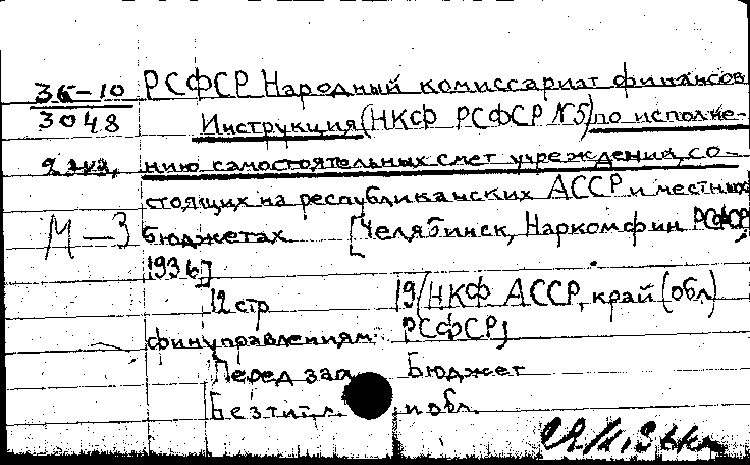 36-10 РСФСР Народный комиссариат финансов
3048 Инструкция (НКФ РСФСР №5) по исполне-
2 экз, нию самостоятельных смет учреждений, со-
стоящих на республиканских АССР и местных
М-3 бюджетах. [Челябинск, Наркомфин РСФСР,
1936]
12 стр 19/(НКФ АССР, край (обл)
финуправлениям РСФСР)
Перед заг. Бюджет
Без тит. л. и обл.